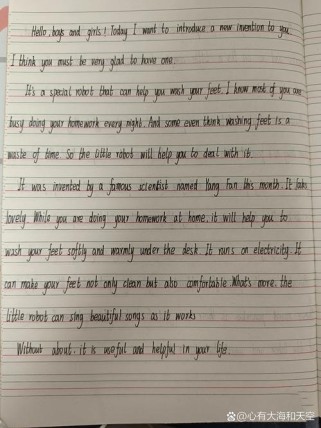 Hello, boys and girls! Today I want to introduce a new invention to you.
I think you must be very glad to have one.
It's a special robot that can help you wash your feet. I know most of you are
busy doing your homework every night. And some even think washing feet is a
waste of time. So the little robot will help you to deal with it.
It was invented by a famous scientist named Yang Fan this month. It looks
lovely. While you are doing your homework at home, it will help you to
wash your feet softly and warmly under the desk. It runs on electricity. It
can make your feet not only clean but also comfortable. What's more, the
little robot can sing beautiful songs as it works
Without about, it is useful and helpful in your life.
@心有大海和天空